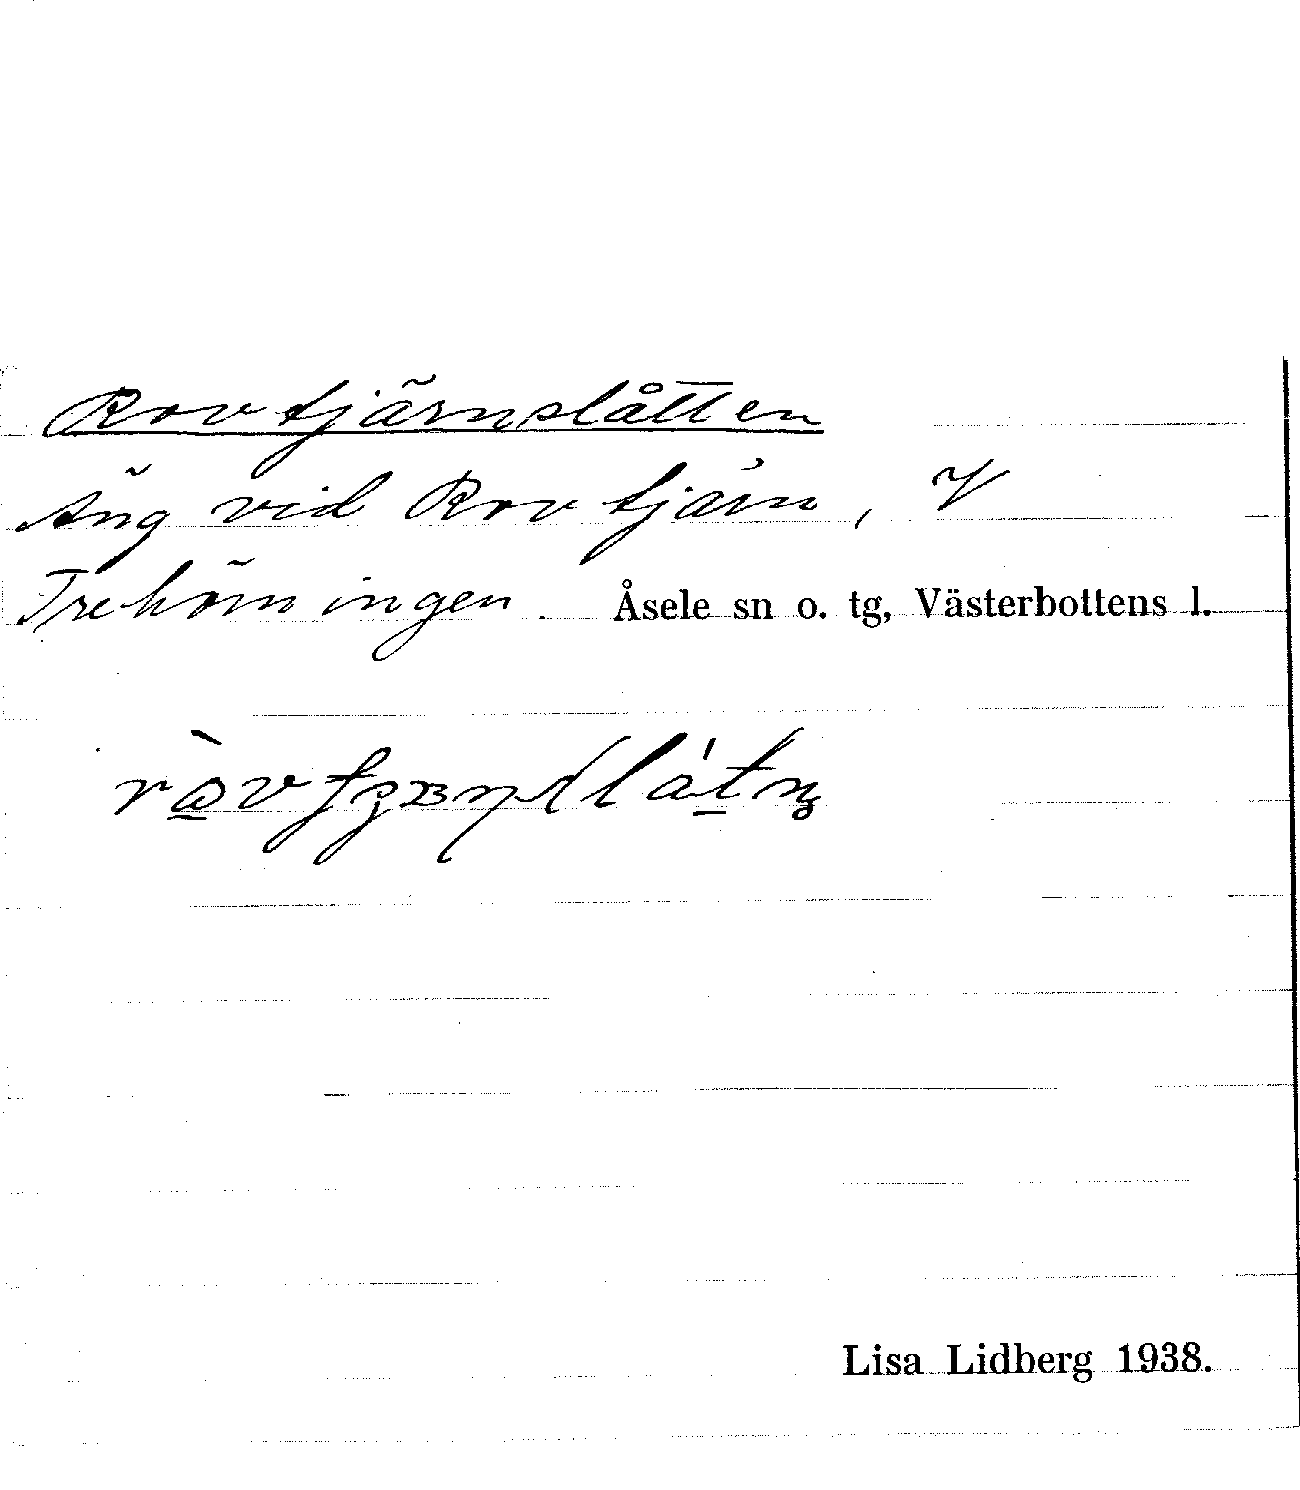 Rovtjärnslåtten
Äng vid Rovtjärn, V
Trehörningen. Åsele sn o. tg, Västerbottens l.
Lisa Lidberg 1938.